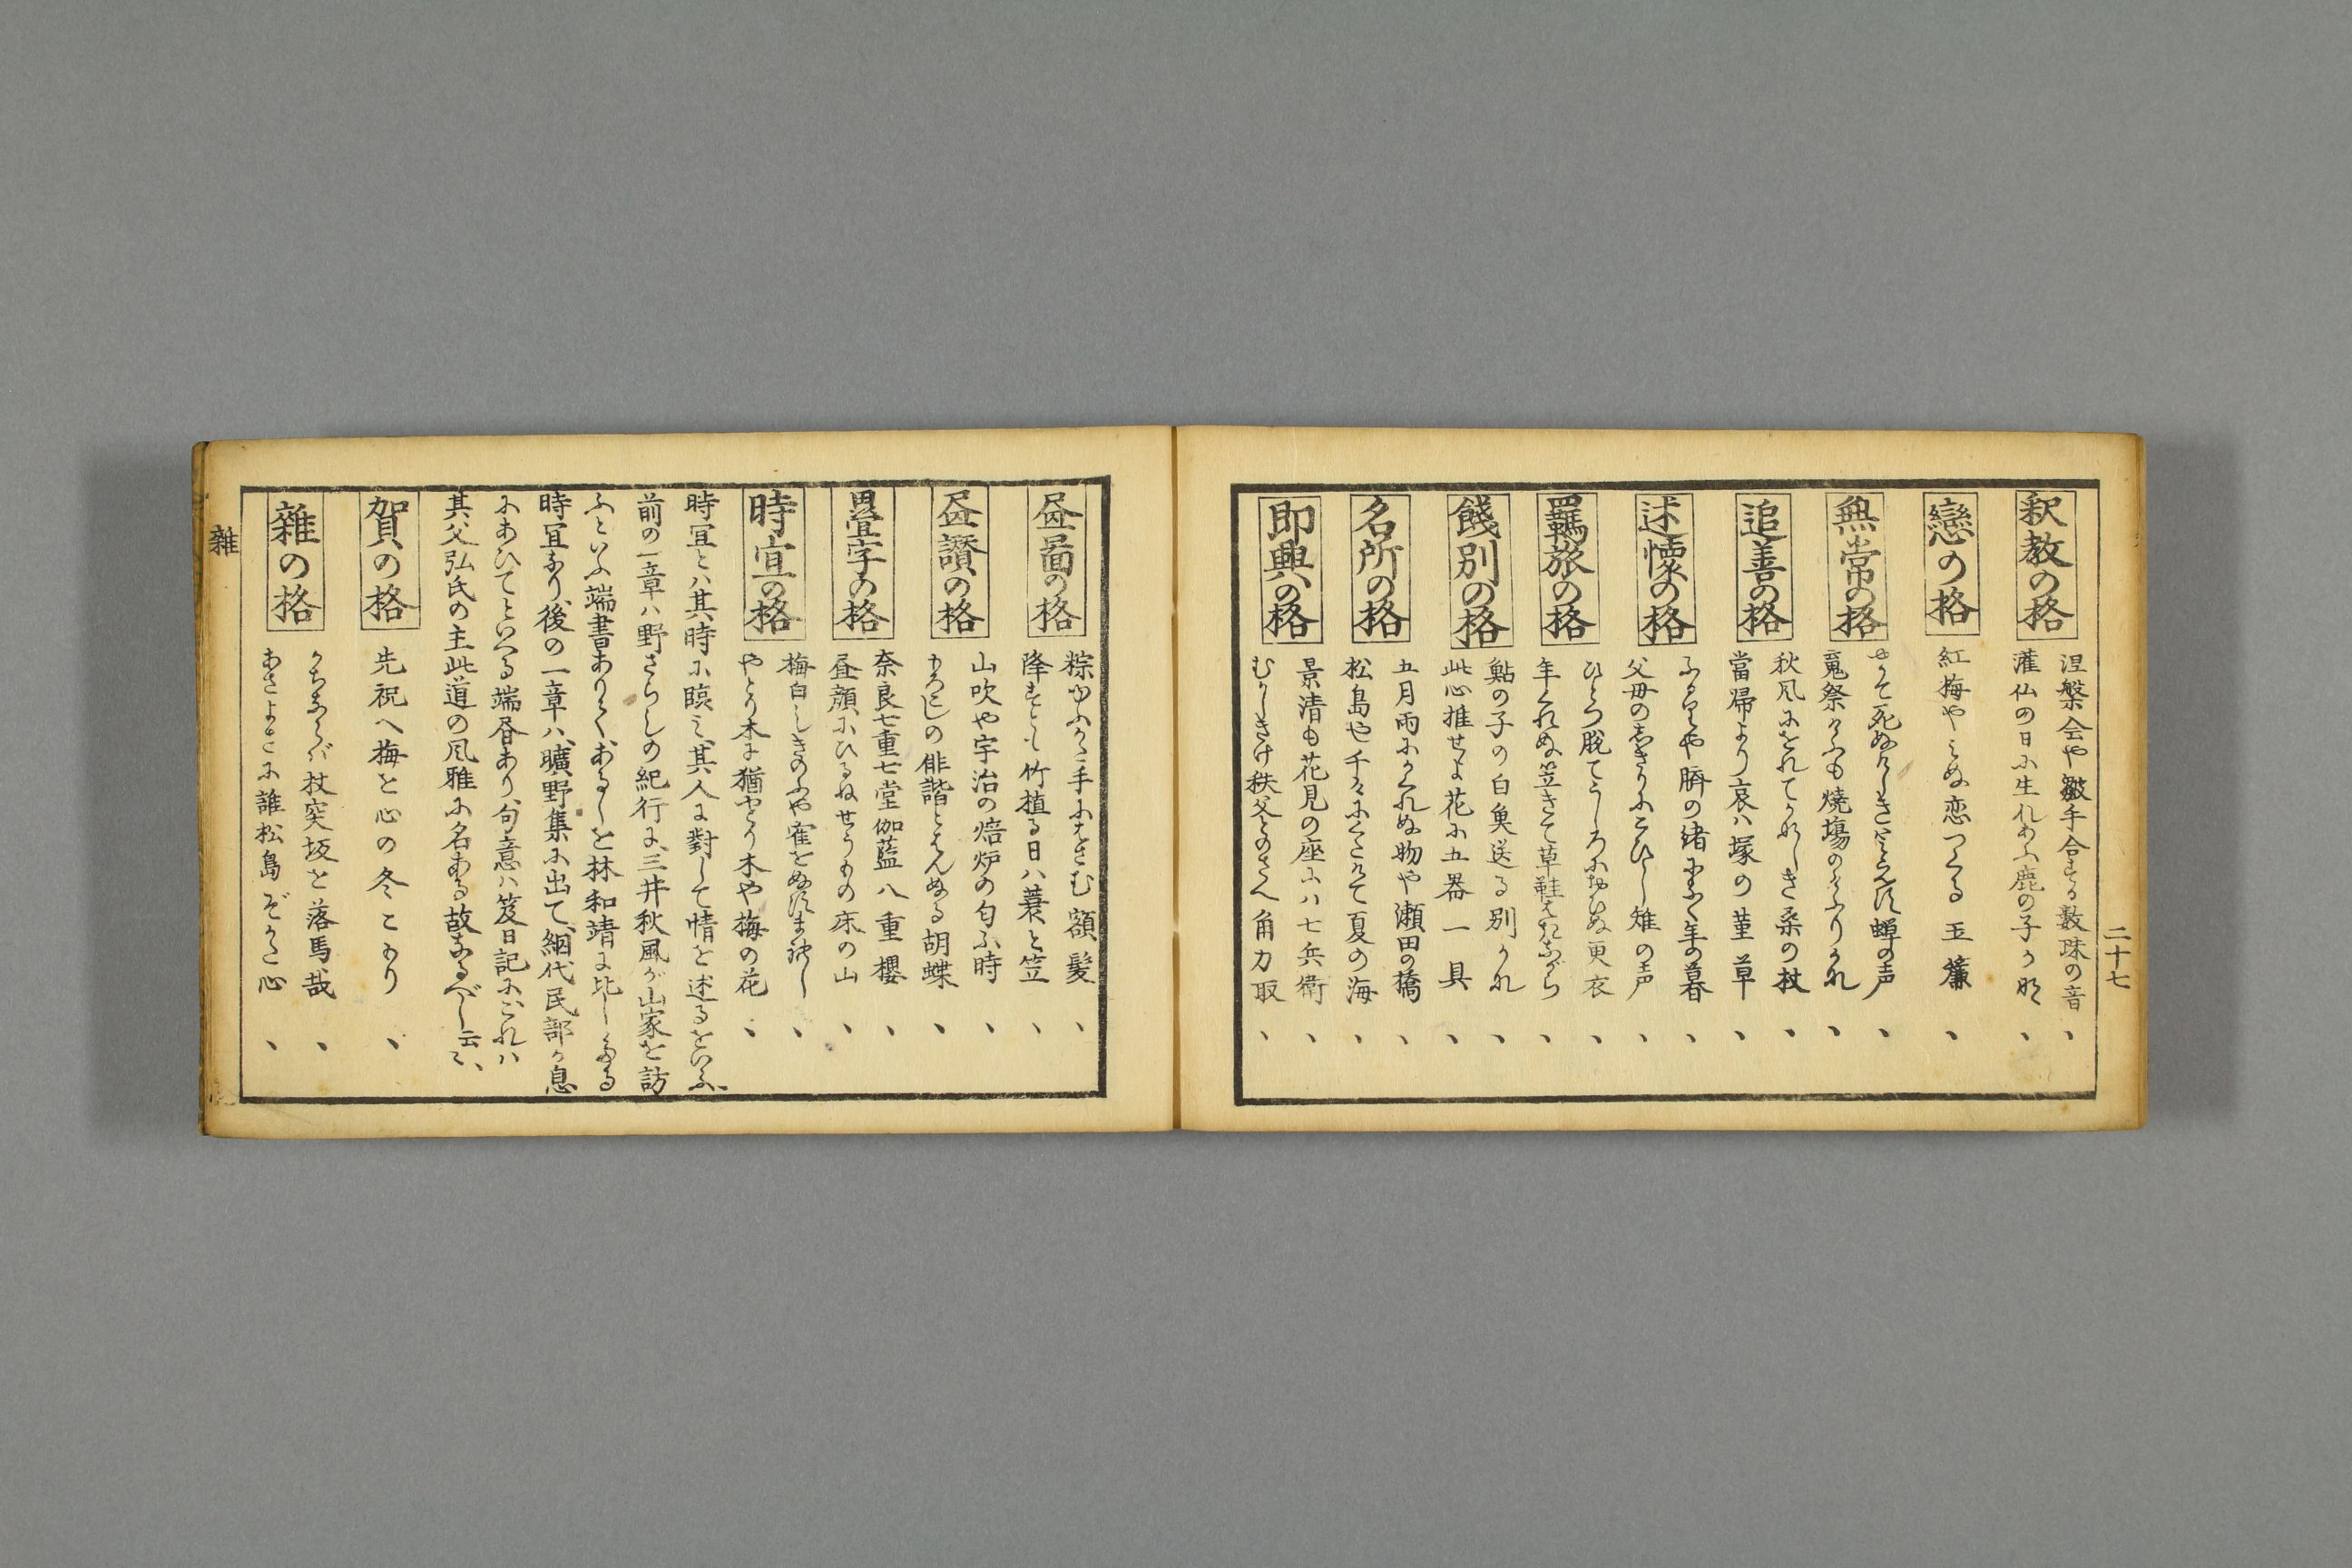 二十七
釈教の格
涅槃会や皺手合する数珠の音
灌仏の日に生れあふ鹿の子かな
戀の格
紅梅や見ぬ恋つくる玉簾
無常の格
やかて死ぬけしきは見えす蝉の声
䰟祭けふも焼場のけふりかな
追善の格
秋風にをれてかなしき桑の杖
當帰より哀ハ塚の菫草
述懐の格
ふるさとや臍の緒になく年の暮
父母のしきりにこひし雉の声
羇旅の格
ひとつ脱てうしろにおひぬ更衣
年くれぬ笠きて草鞋はきなから
餞別の格
鮎の子の白魚送る別かな
此心推せよ花に五器一具
名所の格
五月雨にかくれぬ物や瀬田の橋
松島や千々にくたけて夏の海
即興の格
景清も花見の座にハ七兵衛
むかしきけ秩父とのさへ角力取
畫圖の格
粽ゆふかた手にはさむ額髪
降すとも竹植る日ハ蓑と笠
畫讃の格
山吹や宇治の焙炉の匂ふ時
もろこしの俳諧とはんぬる胡蝶
畳字の格
奈良七重七堂伽藍八重櫻
昼顔にひるねせうもの床の山
時宜の格
梅白しきのふや隺をぬすまれし
やとり木に猶やとり木や梅の花
時宜とハ其時に臨ミ其人に對して情を述るをいふ、
前の一章ハ野さらしの紀行に、三井秋風が山家を訪
ふといふ端書ありて、あるしを林和靖に比したる
時宜なり、後の一章ハ、曠野集に出て、網代民部か息
にあひてといへる端書あり、句意ハ笈日記に、これハ
其父弘氏の主此道の風雅に名ある故なるべし云云、
賀の格
先祝へ梅を心の冬こもり
雑の格
かちならバ杖突坂を落馬哉
あさよさに誰松島ぞかた心
雜